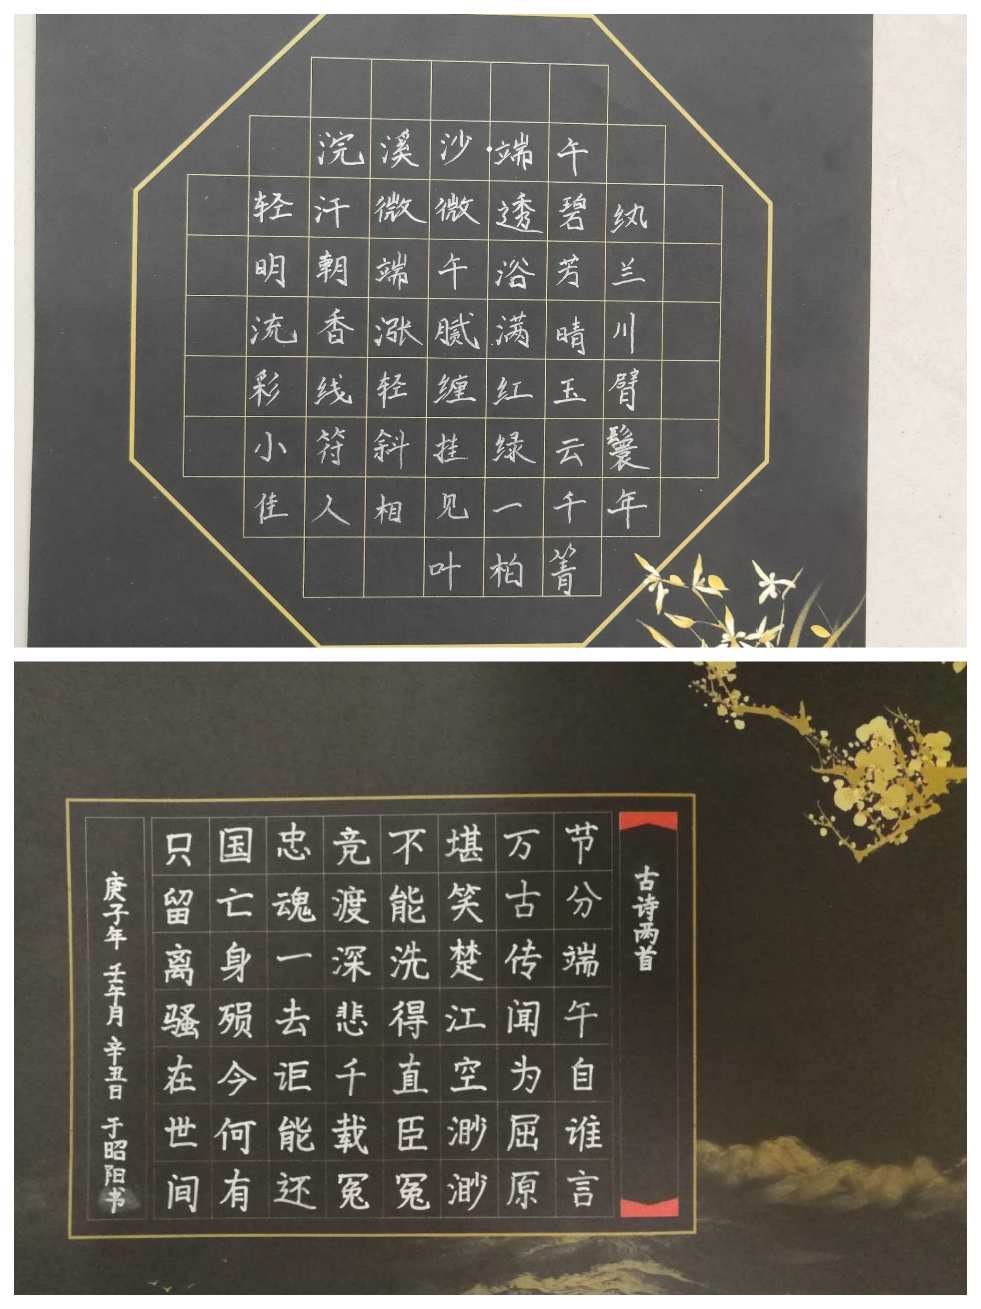 浣溪沙·端午
轻汗微微透碧纨
明朝端午浴芳兰
流香涨腻满晴川
彩线轻缠红玉臂
小符斜挂绿云鬟
佳人相见一千年
叶柏箐
古诗两首
节分端午自谁言
万古传闻为屈原
堪笑楚江空渺渺
不能洗得直臣冤
竞渡深悲千载冤
忠魂一去讵能还
国亡身殒今何有
只留离骚在世间
庚子年 壬午月 辛丑日 于昭阳书